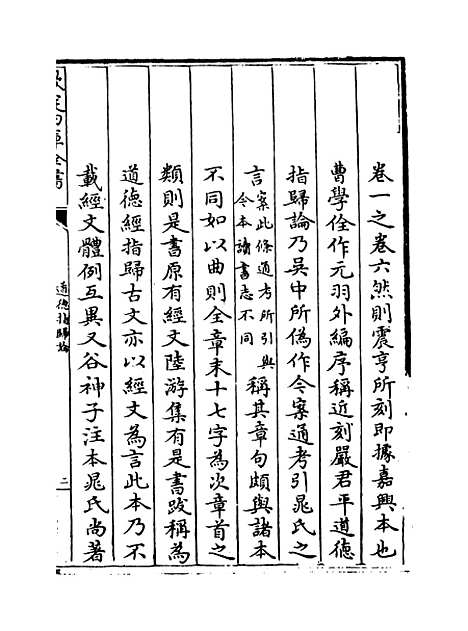 卷一之卷六然則震亨所刻即據嘉興本也
曹學佺作元羽外編序稱近刻嚴君平道德
指歸論乃吳中所偽作今案通考引晁氏之
言案此條通考所引與今本讀書志不同稱其章句頗與諸本
不同如以曲則全章末十七字為次章首之
類則是書原有經文陸游集有是書跋稱為
道德經指歸古文亦以經文為言此本乃不
載經文體例互異又谷神子注本晁氏尚著
欽定四庫全書
道德指歸論
二